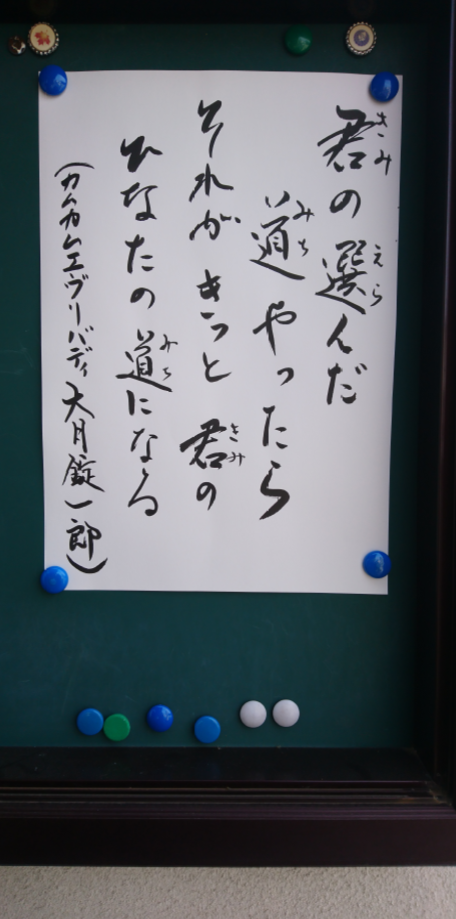 君の選んだ
道やったら
それがきっと君の
ひなたの道になる
(カムカムエヴリバディ大月錠一郎)
きみ
えら
みち
きみ
みち